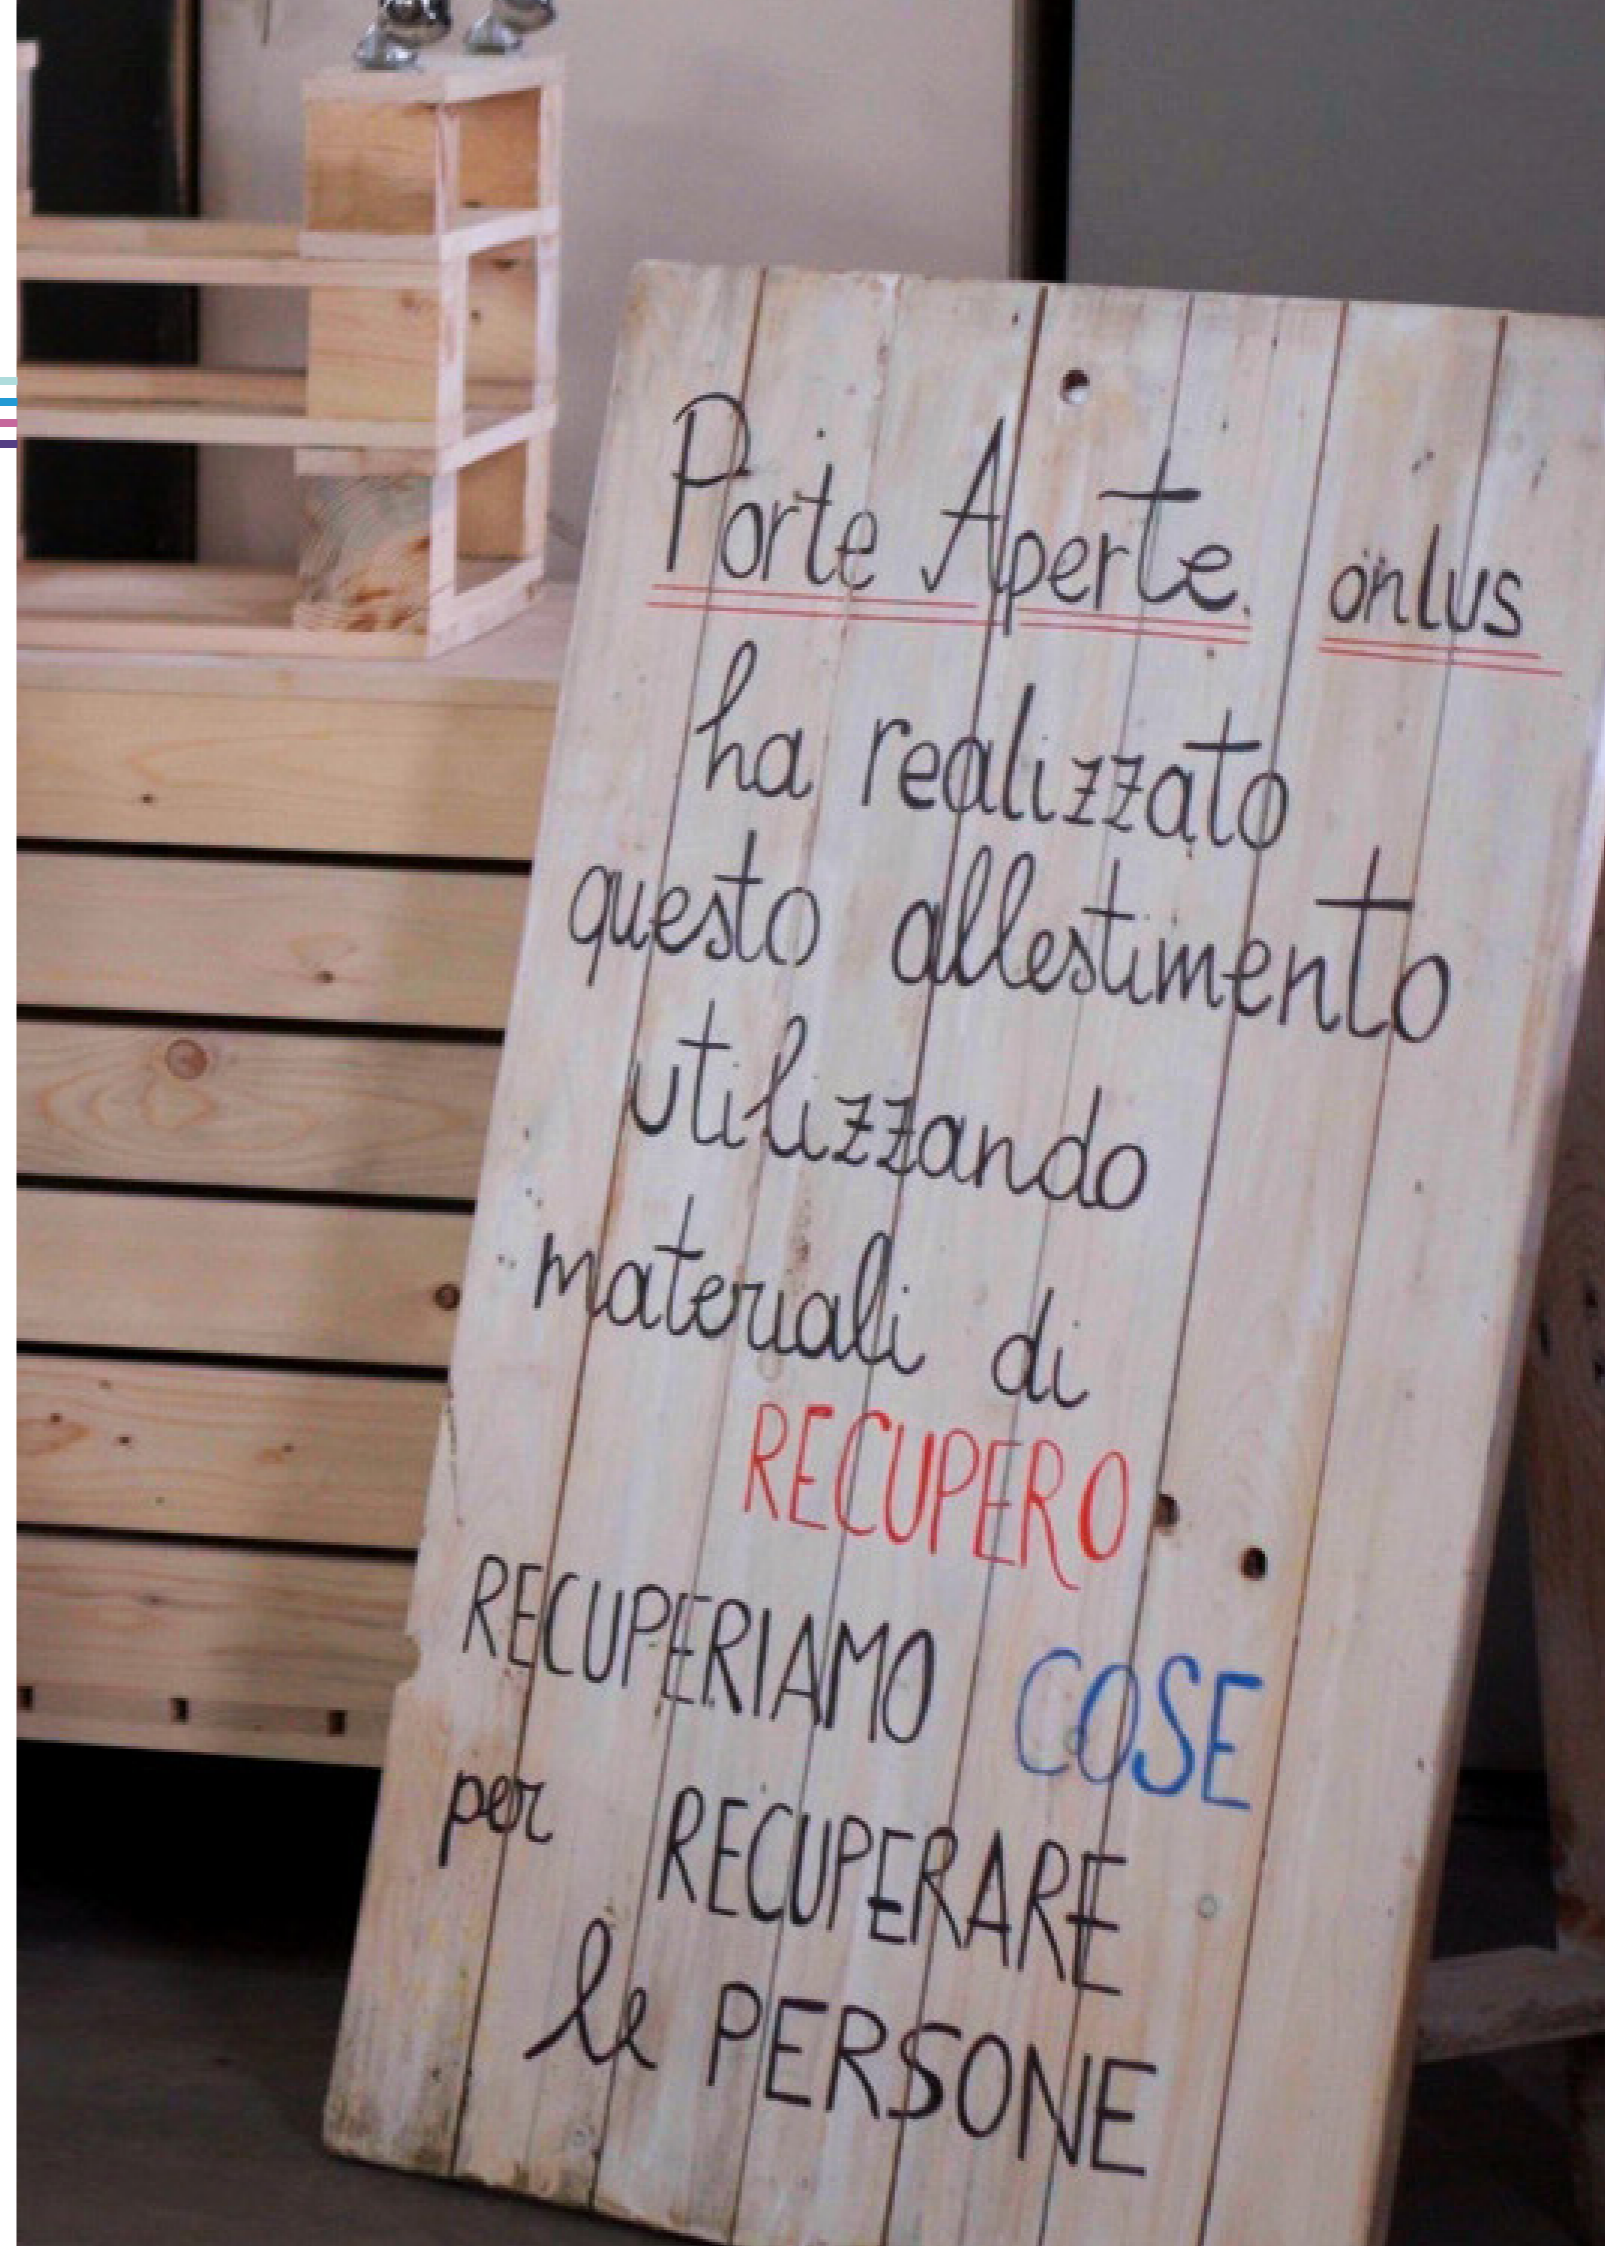 Porte Aperte onlus
ha realizzato
questo allestimento
utilizzando
materiali di
RECUPERO
RECUPERIAMO COSE
per RECUPERARE
le PERSONE